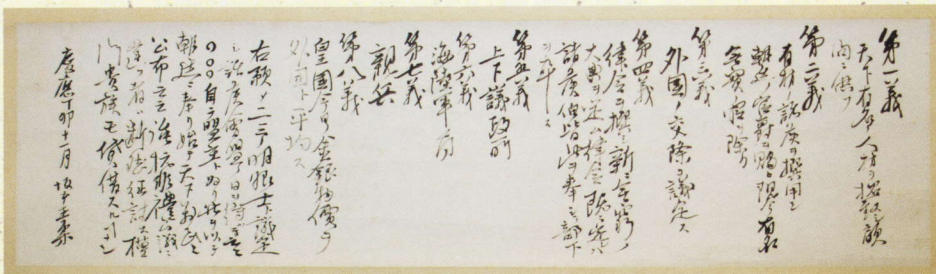 第一義
天下有名ノ人材を招致シ顧
問ニ供フ
第二義
有材ノ諸侯ヲ撰用シ
朝廷ノ官爵ヲ賜ヒ現今有名
無實ノ官ヲ除ク
第三義
外国ノ交際ヲ議定ス
第四義
律令ヲ撰シ新ニ無窮ノ
大典ヲ定ム律令既ニ定レハ
諸侯伯皆此ヲ奉シテ部下
ヲ率ユ
第五義
上下議政所
第六義
海陸軍局
第七義
親兵
第八義
皇國今日ノ金銀物價ヲ
外國ト平均ス
右預メ二三ノ明眼士ト議定
シ諸侯會盟ノ日ヲ待ツテ云云
〇〇〇自ラ盟主ト為リ此ヲ以テ
朝廷ニ奉リ始テ天下萬民ニ
公布云云強抗非禮公議ニ
違フ者ハ断然征討ス權
門貴族モ貸借スルコトナシ
慶應丁卯十一月 坂本直柔